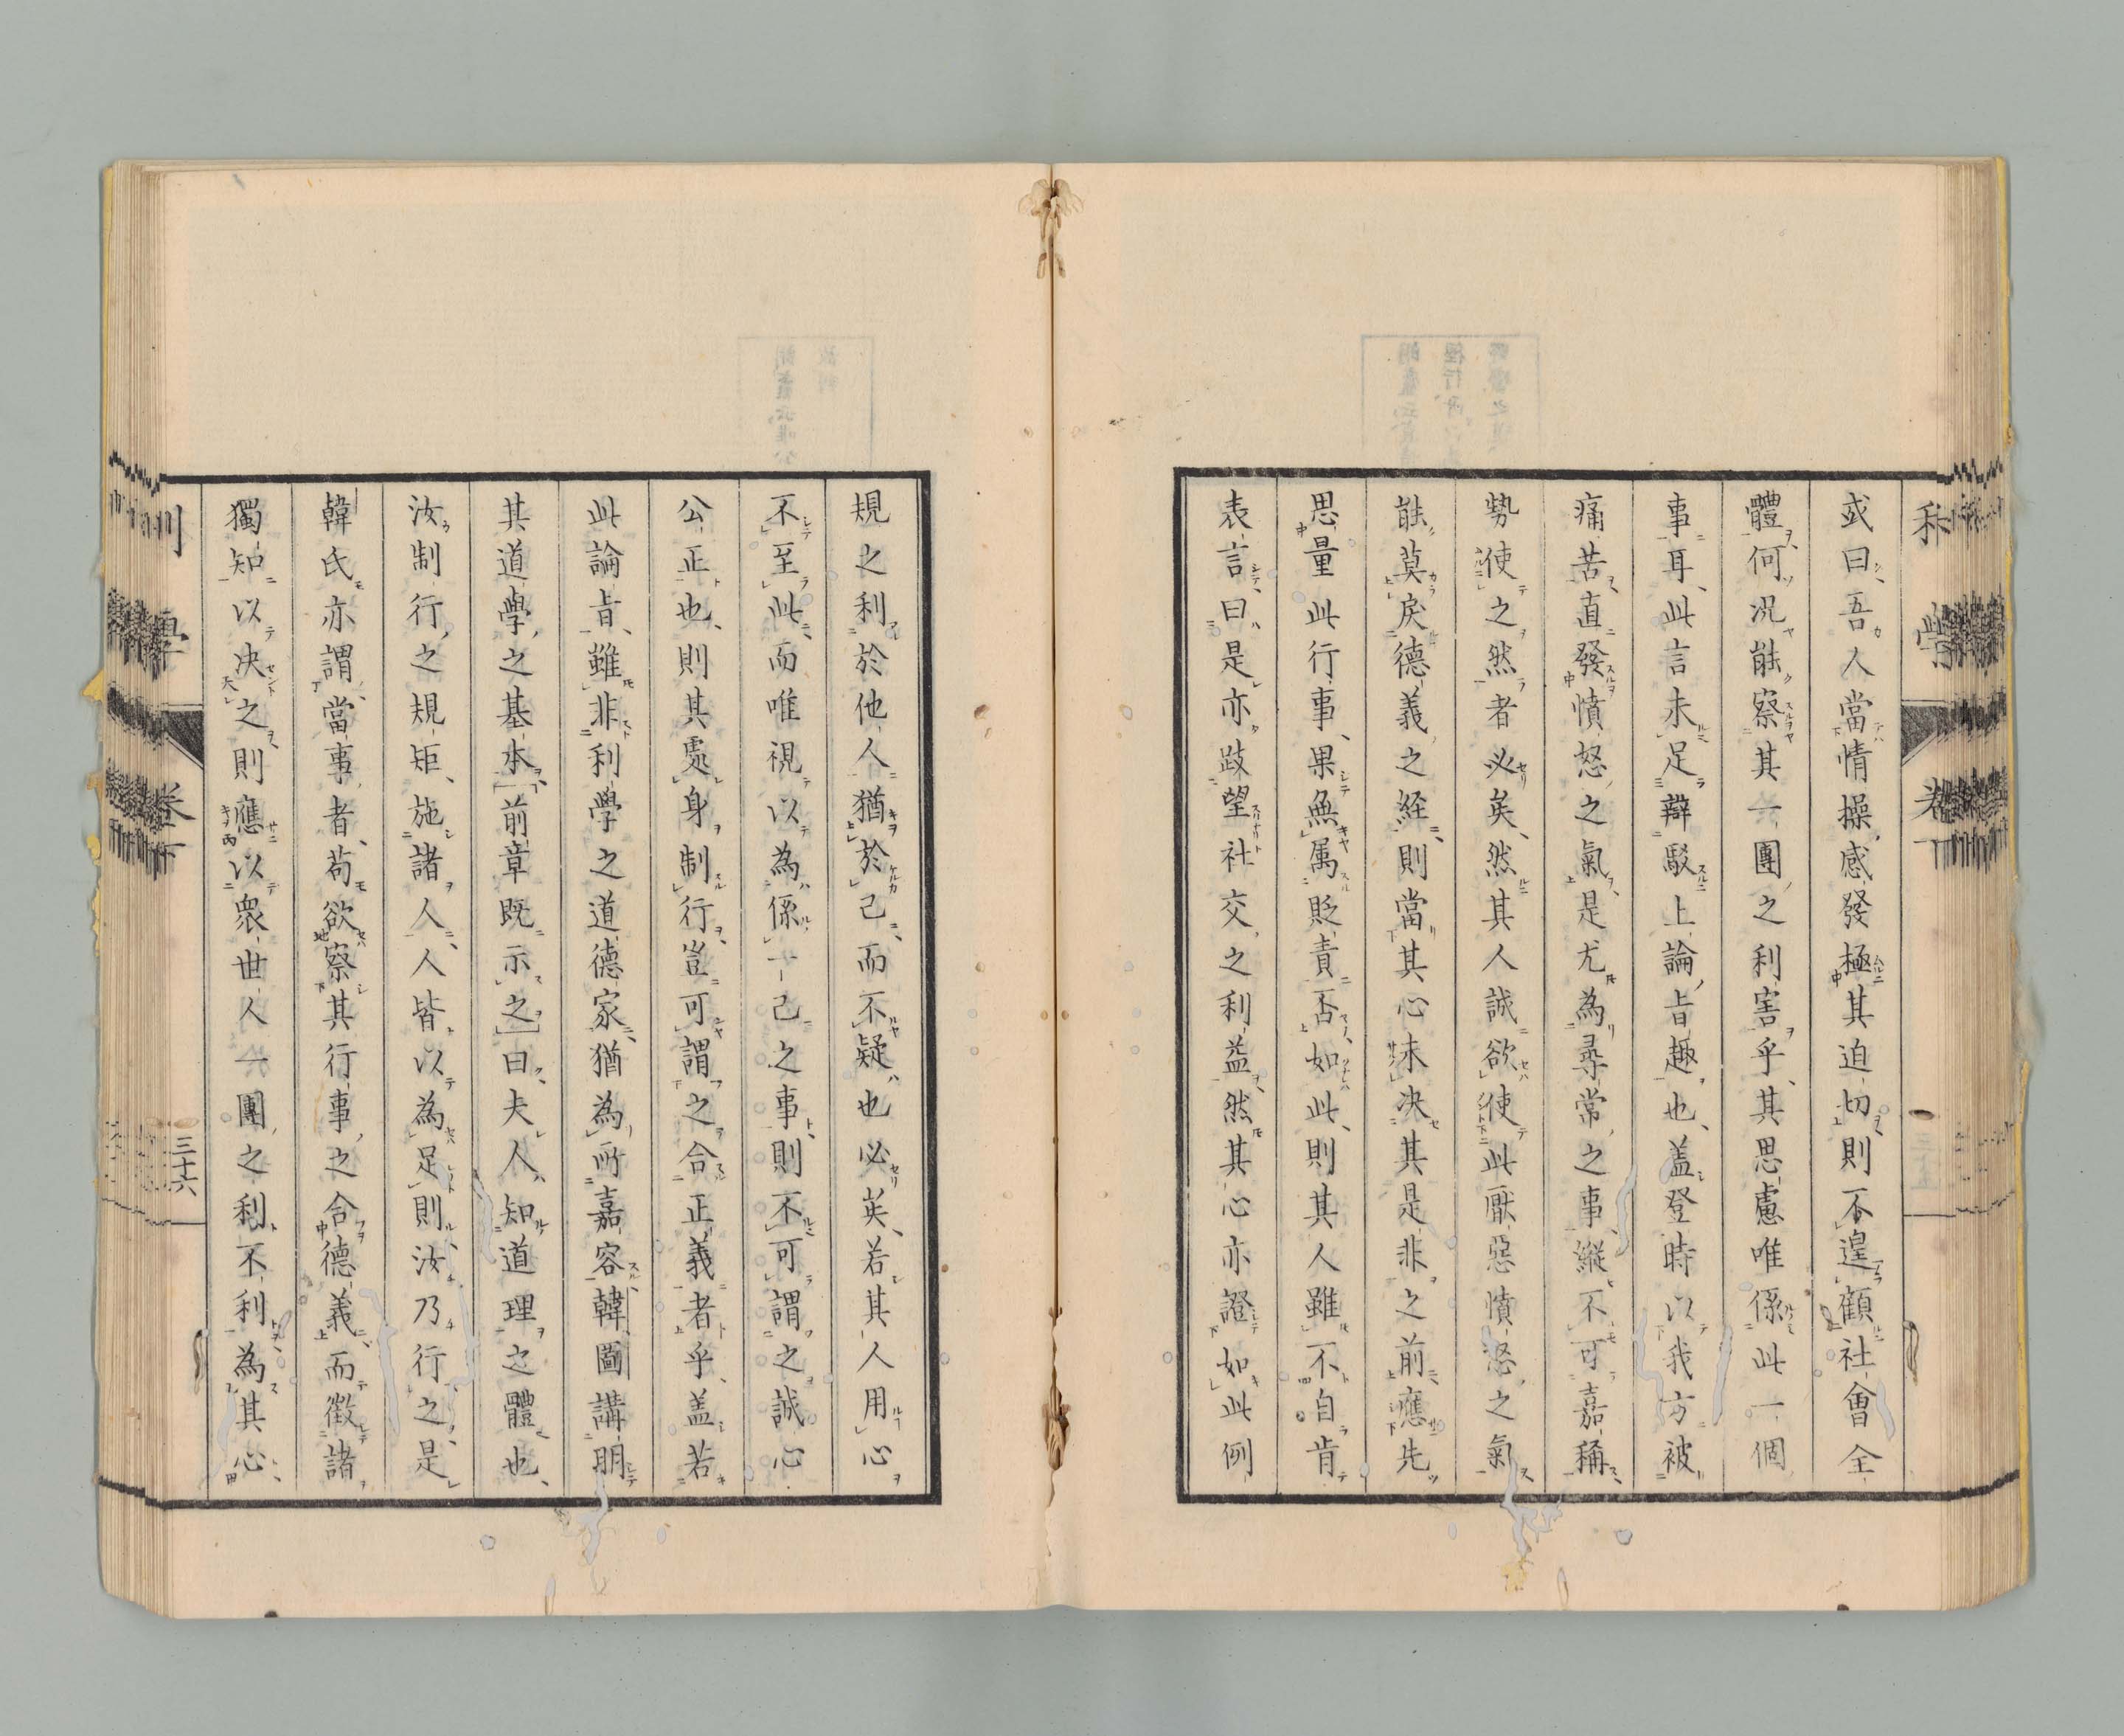 或曰、吾人當情操感發極其迫切、則不遑顧社會全
體、何況能察其一團之利害乎、其思慮唯係此一個
事耳、此言未足辯駁上論旨趣也、盖登時以我方被
痛苦、直發憤怒之氣、是尤為尋常之事、縱不可嘉稱、
勢使之然者必矣、然其人誠欲使此厭惡憤怒之氣
能莫戾德義之経、則當其心未決其是非之前、應先
思量此行事、果無属貶責否、如此、則其人雖不自肯
表言、曰是亦跂望社交之利益、然其心亦證如此例
規之利於他人、猶於己、而不疑也必矣、若其人用心
不至此、而唯視以為係一己之事、則不可謂之誠心
公正也、則其處身制行、豈可謂之合正義者乎、盖若
此論旨、雖非利學之道德家、猶為所嘉容、韓圖講明
其道學之基本、前章既示之曰、夫人、知道理之體也、
汝制行之規矩、施諸人、人皆以為足、則汝乃行之、是
韓氏亦謂、當事者、苟欲察其行事之合德義、而徵諸
獨知、以決之、則應以衆世人一團之利不利為其心、
利學
卷下
三十六